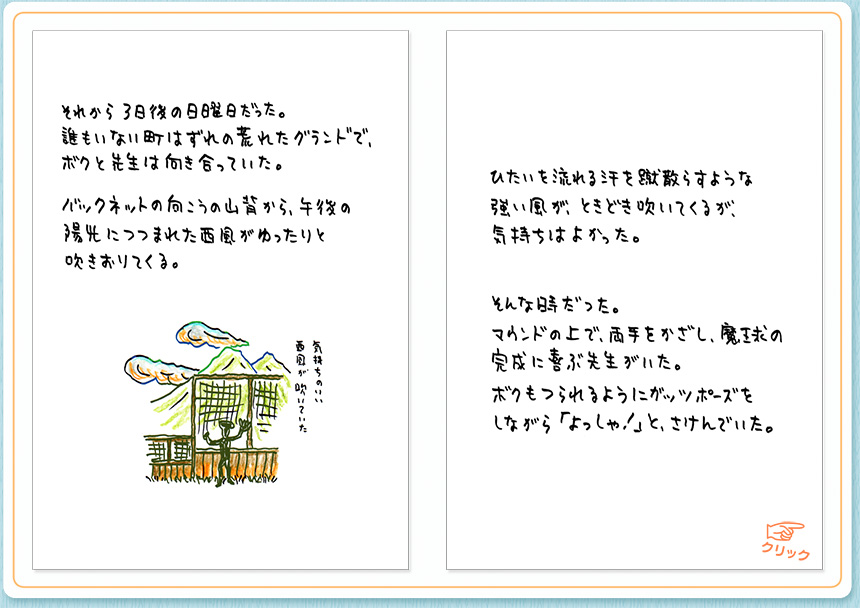 それから3日後の日曜日だった。
誰もいない町はずれの荒れたグランドで、
ボクと先生は向き合っていた。
バックネットの向こうの山背から、午後の
陽光につつまれた西風がゆったりと
吹きおりてくる。
気持ちのいい
西風が吹いていた
ひたいを流れる汗を蹴散らすような
強い風が、ときどき吹いてくるが、
気持ちはよかった。
そんな時だった。
マウンドの上で、両手をかざし、魔球の
完成に喜ぶ先生がいた。
ボクもつられるようにガッツポーズを
しながら「よっしゃ!」と、さけんでいた。
クリック